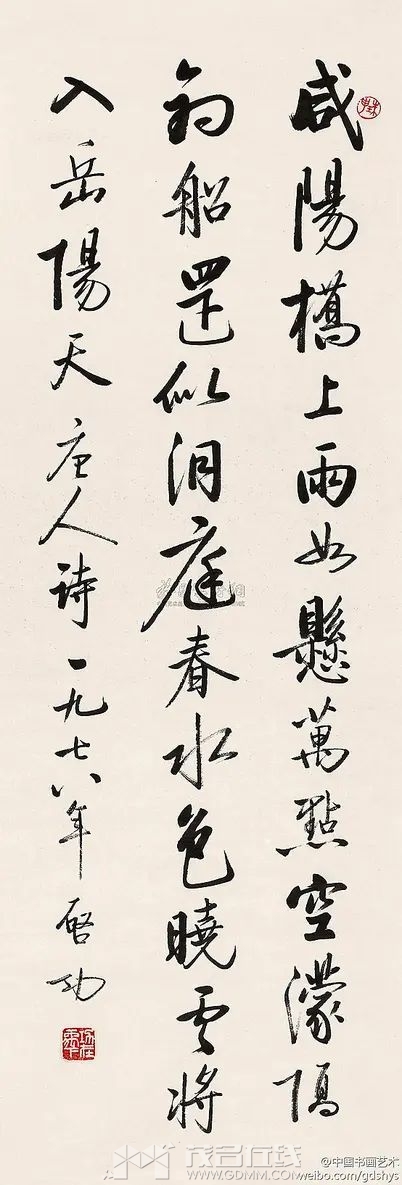 咸陽橋上雨如懸萬點空濛隔
釣船還似洞庭春水色曉云將
入岳陽天唐人詩一九七八年啓功
茂名在线
WWW.GDMM.COM
@中国书画艺术
weibo.com/gdshys